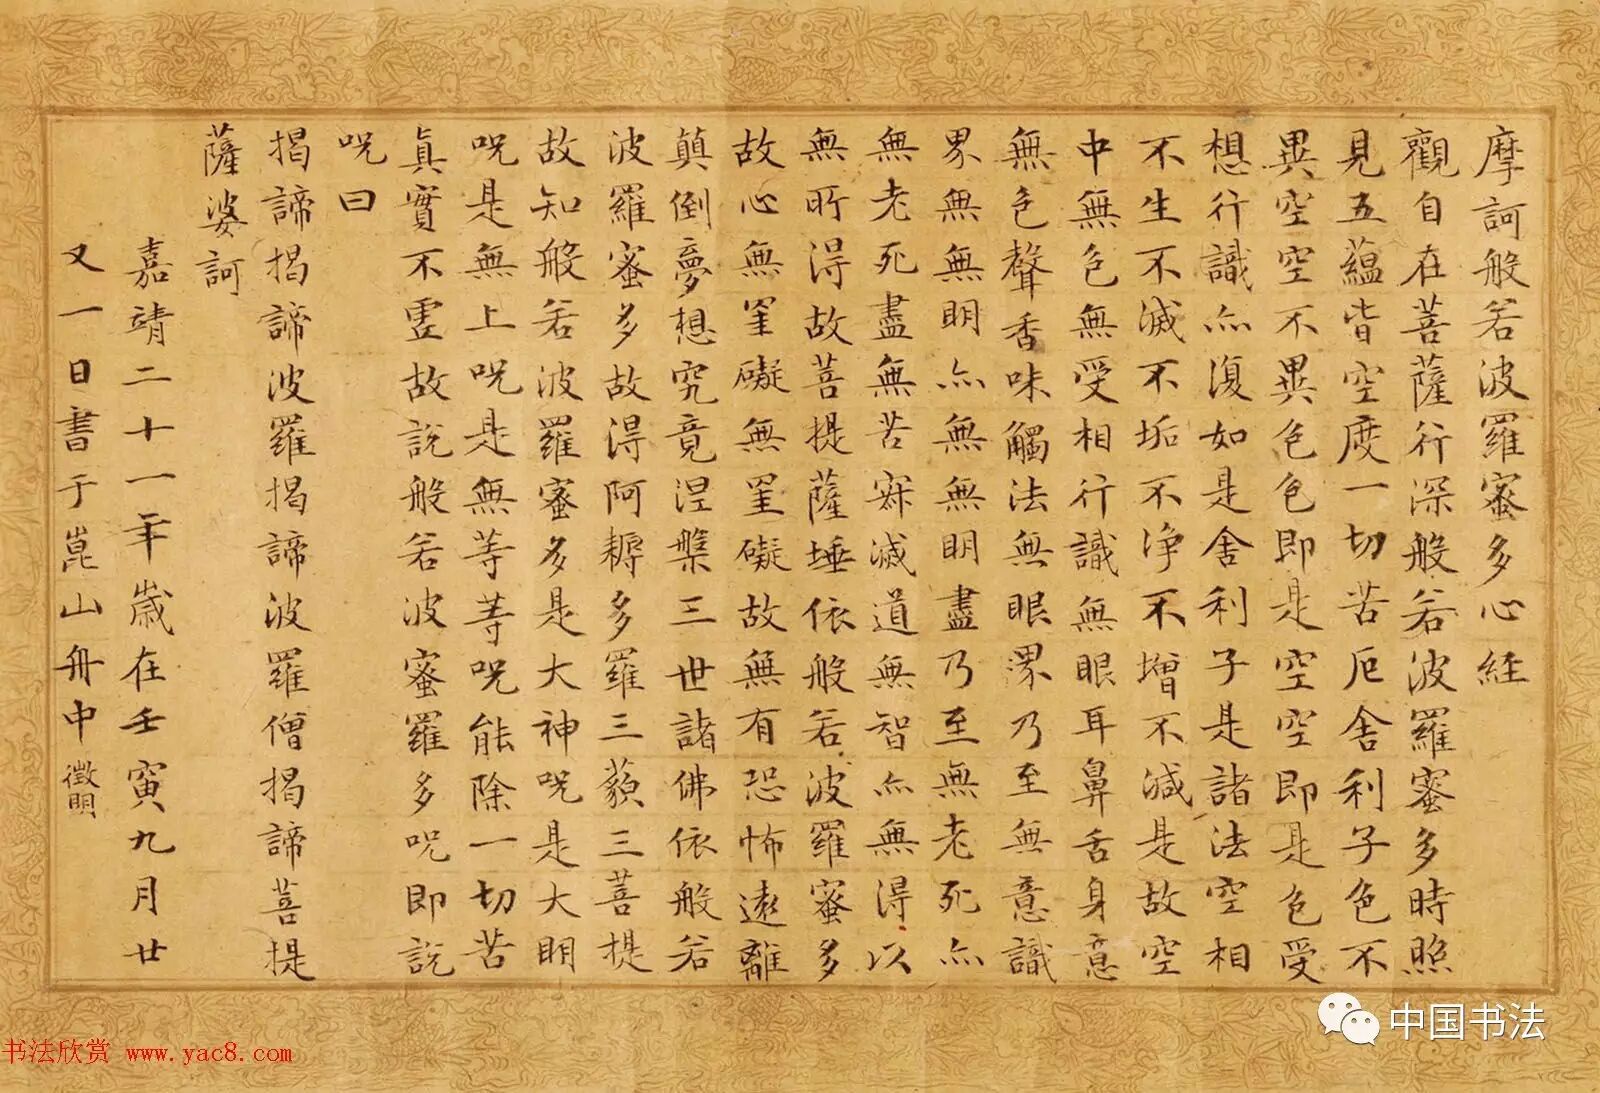 摩訶般若波羅蜜多心經
觀自在菩薩行深般若波羅蜜多時照
見五蘊皆空度一切苦厄舍利子色不
異空空不異色色即是空空即是色受
想行識亦復如是舍利子是諸法空相
不生不滅不垢不淨不增不減是故空
中無色無受相行識無眼耳鼻舌身意
無色聲香味觸法無眼界乃至無意識
界無無明亦無無明盡乃至無老死亦
無老死盡無苦寂滅道無智亦無得以
無所得故菩提薩埵依般若波羅蜜多
故心無罣礙無罣礙故無有恐怖遠離
顛倒夢想究竟涅槃三世諸佛依般若
波羅蜜多故得阿耨多羅三藐三菩提
故知般若波羅蜜多是大神咒是大明
咒是無上咒是無等等咒能除一切苦
真實不虛故說般若波蜜羅多咒即說
咒曰
揭諦揭諦波羅揭諦波羅僧揭諦菩提
薩婆訶
嘉靖二十一年歲在壬寅九月廿
又一日書于崑山舟中徵明
中国书法
书法欣赏 www.yac8.com